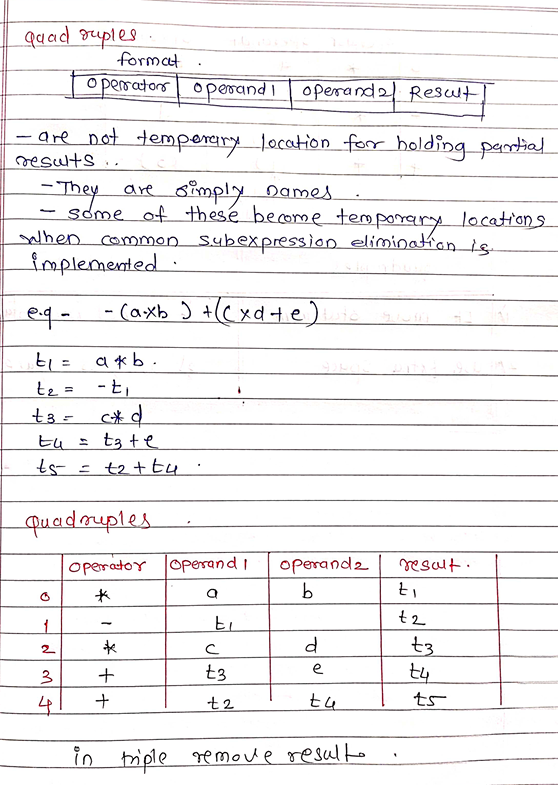 quadruples.
format.
operator | operand1 | operand2 | Result
- are not temperary location for holding partial
results..
- They are simply names.
- some of these become temporary locations
when common subexpression elimination is
implemented.
e.g - -(a×b) + (c×d+e)
t1 = a*b.
t2 = -t1
t3 = c*d
t4 = t3+e
t5 = t2+t4.
quadruples.
operator | operand1 | operand2 | result.
0 | * | a | b | t1
1 | - | t1 | | t2
2 | * | c | d | t3
3 | + | t3 | e | t4
4 | + | t2 | t4 | t5
in triple remove result.